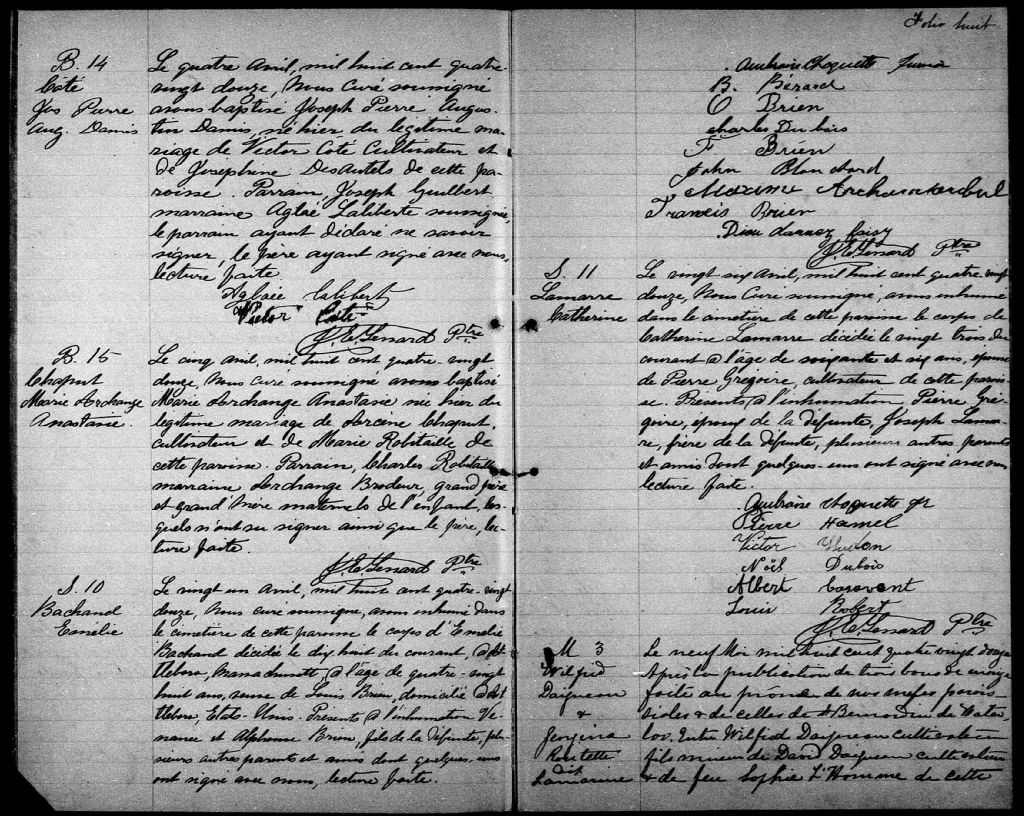 B. 14
Côté
Jos Pierre
Aug. Damis
Le quatre Avril, mil huit cent quatre
vingt douze, Nous Curé soussigné
avons baptisé Joseph Pierre Augus-
tin Damis, né hier du légitime ma-
riage de Victor Coté Cultivateur et
de Joséphine DesAutels de cette pa-
roisse. Parrain, Joseph Guilbert
marraine Aglaé Laliberté soussignée,
le parrain ayant déclaré ne savoir
signer, le père ayant signé avec nous,
lecture faite.
Aglaée Laliberté
Victor Côté
Ptre
B. 15
Chaput
Marie Archange
Anastasie.
Le cinq Avril, mil huit cent quatre-vingt
douze, Nous Curé soussigné avons baptisé
Marie Archange Anastasie née hier du
légitime mariage de Arcène Chaput,
cultivateur et de Marie Robitaille de
cette paroisse. Parrain, Charles Robitaille
marraine Archange Brodeur, grand père
et grand'mère maternels de l'enfant, les-
quels n'ont su signer ainsi que le père, lec-
ture faite.
Ptre
S. 10
Bachand
Emélie
Le vingt un Avril, mil huit cent quatre-vingt
douze, Nous Curé soussigné, avons inhumé dans
le cimetière de cette paroisse le corps d'Emélie
Bachand décédée le dix huit du courant, à At
tleboro, Massachusetts, à l'âge de quatre-vingt
huit ans, veuve de Louis Brien, domicilié à At
tleboro Etats-Unis. Présents à l'inhumation Ve-
nance et Alphonse Brien, fils de la défunte, plu-
sieurs autres parents et amis dont quelques-uns
ont signé avec nous, lecture faite.
Folio huit
Ambroise Choquette Junior
B. Bérard
O Brien
Charles Dubois
F Brien
John Blanchard
Archambault
Francis Brien
Ptre
S. 11
Lamarre
Catherine
Le vingt six Avril, mil huit cent quatre-vingt
douze, Nous Curé soussigné, avons inhumé
dans le cimetière de cette paroisse le corps de
Catherine Lamarre décédée le vingt trois du
courant à l'âge de soixante et six ans, épouse
de Pierre Grégoire, cultivateur de cette parois-
se. Présents à l'inhumation Pierre Gré-
goire, époux de la défunte, Joseph Lamar-
re, frère de la défunte, plusieurs autres parents
et amis dont quelques-uns ont signé avec nous
lecture faite.
Ambroise Choquette jr
Pierre Hamel
Victor
Noël Dubois
Albert Casavant
Louis Robert
Ptre
M 3
Wilfrid
Daigneau
&
Georgina
Routette
dit
Lamarine
Le neuf Mai mil huit cent quatre vingt douze
Après la publication de trois bans de mariage
faite au prône de nos messes parois-
siales & de celles de St Bernardin de Water-
loo. Entre Wilfrid Daigneau cultivateur
fils mineur de David Daigneau cultivateur
& de feu Sophie L'Homme de cette